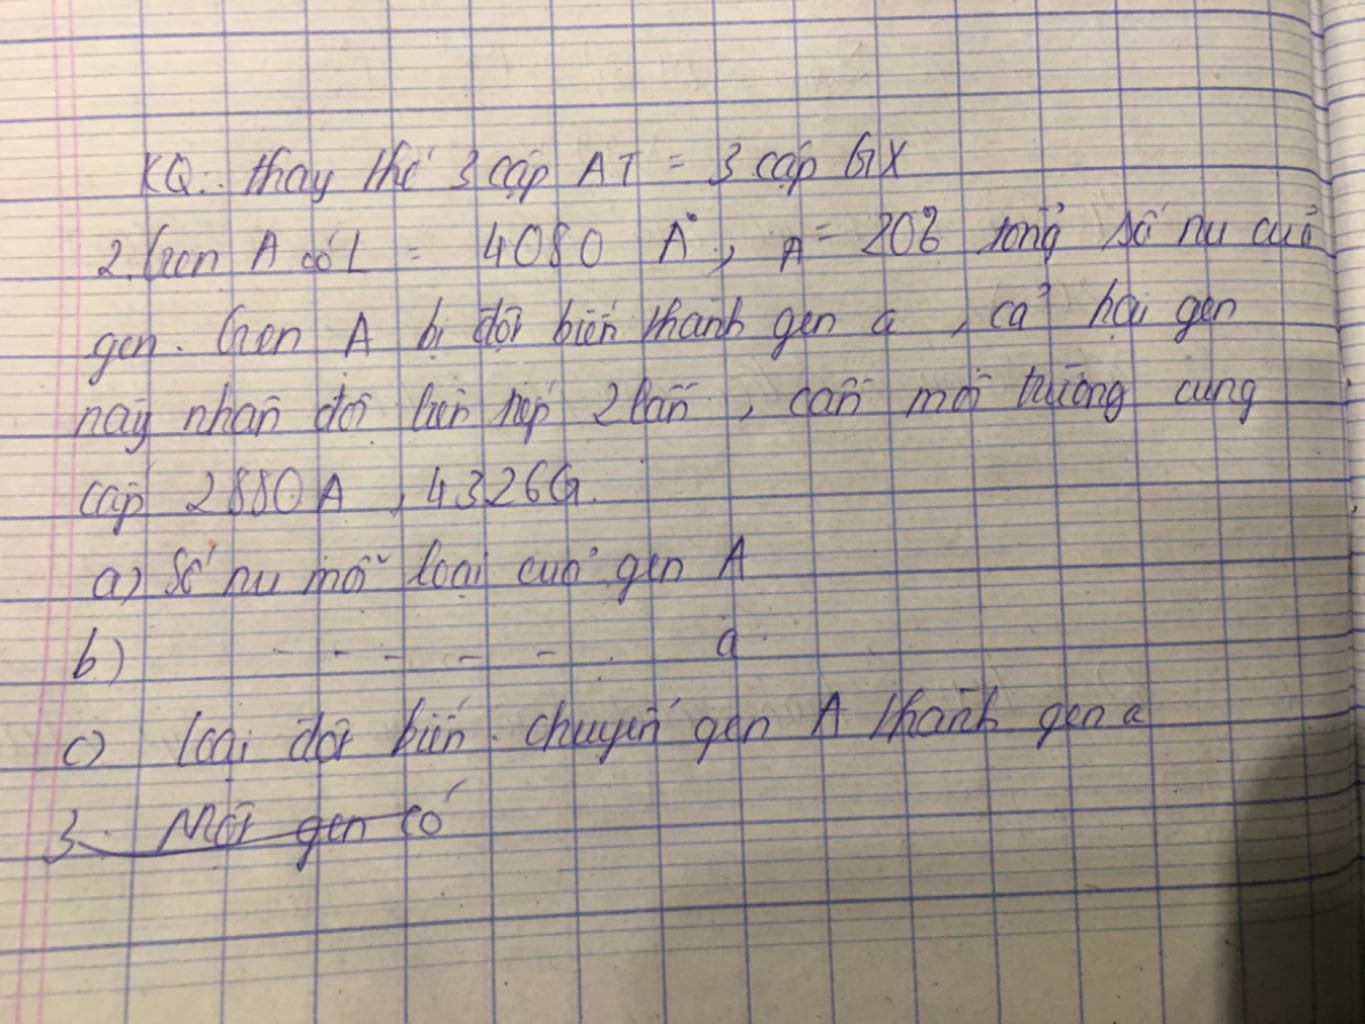 KQ: thay thế 3 cặp AT = 3 cặp GX
2. Gen A có L = 4080 A°, A = 20% tổng số nu của
gen. Gen A bị đột biến thành gen a, cả hai gen
này nhân đôi liên tiếp 2 lần, cần môi trường cung
cấp 2880A, 4326G.
a) Số nu mỗi loại của gen A
b) - - - - - . a
c) Loại đột biến chuyển gen A thành gen a
3. Một gen có